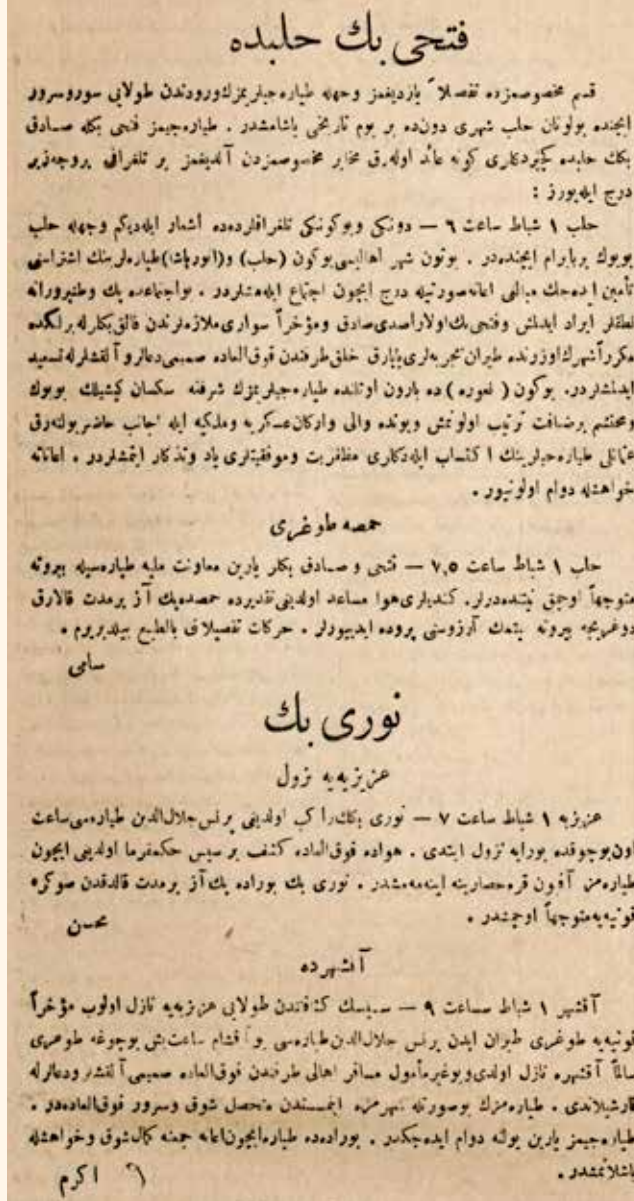 فتحی بك حلبده
قسم مخصوصمزده تفصلاً يازديغمز وجهله طياره‌جيلريمزك ورودندن طولايی سور و سرور
ايچنده بولونان حلب شهری دون‌ده بر يوم تاريخی ياشامشدر . طياره‌جيمز فتحی بكله صادق
بكك حلبده كچيردكلری كونه عائد اوله‌رق مخابر مخصوصمزدن آلديغمز بر تلغرافی بروجه‌زير
درج ايله‌يورز :
حلب ١ شباط ساعت ٦ — دونكی وبوكونكی تلغرافلرده‌ده أشعار ايله‌ديكم وجهله حلب
بويوك بر بايرام ايچنده‌در . بوتون شهر اهاليسی بوكون (حلب) و(ادورپاشا) طياره‌لرينك اشتراسنی
تأمين ايده‌جك مبالغی اعانه صورتيله درج ايچون اجتماع ايله‌مشلردر . بو اجتماعده پك وطنپرورانه
نطقلر ايراد ايدلمش وفتحی بك اولا راصدی صادق ومؤخراً سواری ملازملرندن فائق بكلر له برلكده
مكرراً شهرك اوزرنده طيران تجربه‌لری ياپارق خلق طرفندن فوق‌العاده صميمی دعالر و آلقشلرله تسعيد
ايدلمشلردر. بوكون ( نعوره ) ده بارون اوتلنده طياره‌جيلريمزك شرفنه سكسان كيشيلك بويوك
ومحتشم بر ضيافت ترتيب اولونمش وبونده والی واركان عسكريه وملكيه ايله اجانب حاضر بولنه‌رق
عثمانلی طياره‌جيلرينك اكتساب ايله‌دكلری مظفريت وموفقيتلری ياد وتذكار ايتمشلردر . اعانانه
خواهشله دوام اولونيور .
حمصه طوغری
حلب ١ شباط ساعت ٧,٥ — فتحی و صادق بكلر يارين معاونت مليه طياره‌سيله بيروته
متوجهاً اوچمق نيتنده‌درلر. كنديلری هوا مساعد اولدينی تقديرده حمصده پك آز بر مدت قالارق
دوغريجه بيروته يتمك آرزوسنی پرورده ايدييورلر . حركات تفصيلاتی بالطبع بيلديريرم .
سامی
نوری بك
عزيزيه‌يه نزول
عزيزيه ١ شباط ساعت ٧ — نوری بكك راكب اولدينی پرنس جلال‌الدين طياره‌سی ساعت
اون بوچوقده بورايه نزول ايتدی . هواده فوق‌العاده كثيف بر سيس حكمفرما اولدينی ايچون
طياره‌مز آفيون قره‌حصارينه اينه‌مه‌مشدر . نوری بك بوراده پك آز بر مدت قالدقدن صوكره
قونيه‌يه متوجهاً اوچمشدر .
محسن
آقشهرده
آقشهر ١ شباط ساعت ٩ — سيسك كثافتندن طولايی عزيزيه‌يه نازل اولوب مؤخراً
قونيه‌يه طوغری طيران ايدن پرنس جلال‌الدين طياره‌سی بو آقشام ساعت بش بوچوغه طوغری
سالماً آقشهره نازل اولدی وبو غيرمأمول مسافر اهالی طرفندن فوق‌العاده صميمی آلقشلر ودعالرله
قارشيلاندی . طياره‌مزك بو صورتله شهرمزه اينمسندن متحصل شوق وسرور فوق‌العاده‌در .
طياره‌جيمز يارين يولنه دوام ايده‌جكدر . بوراده‌ده طياره ايچون اعانه جمعنه كمال شوق وخواهشله
باشلانمشدر .
اكرم